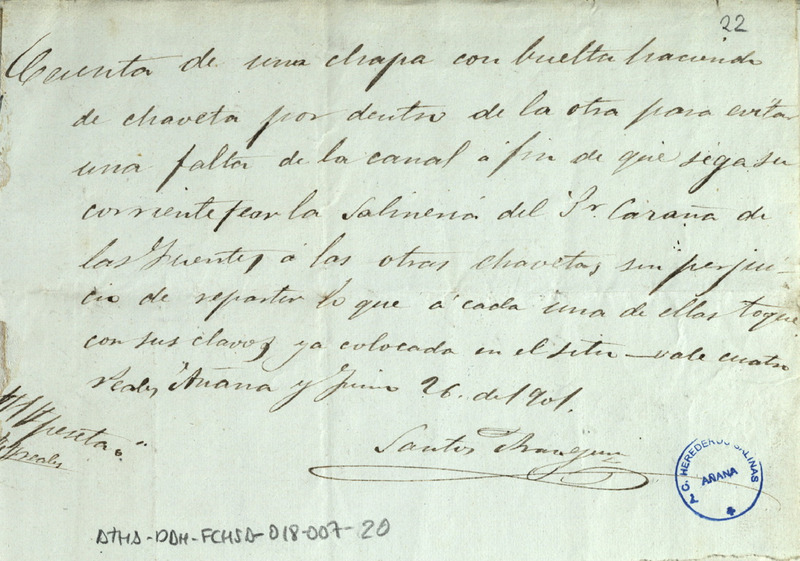 22
Cuenta de una chapa con buelta haciendo
de chaveta por dentro de la otra para evitar
una falta de la canal á fin de que siga su
corriente por la Salineria del Sr. Caraña de
las Fuentes, á las otras chavetas, sin perjui-
cio de repartir lo que á cada una de ellas toque
con sus clavos, ya colocada en el sitio - vale cuatro
reales Añana y Junio 26. de 1901.
peseta
reales
Santos
C. HEREDEROS SALINAS
AÑANA
ATHA-DAH-FCHSA-018-007-20